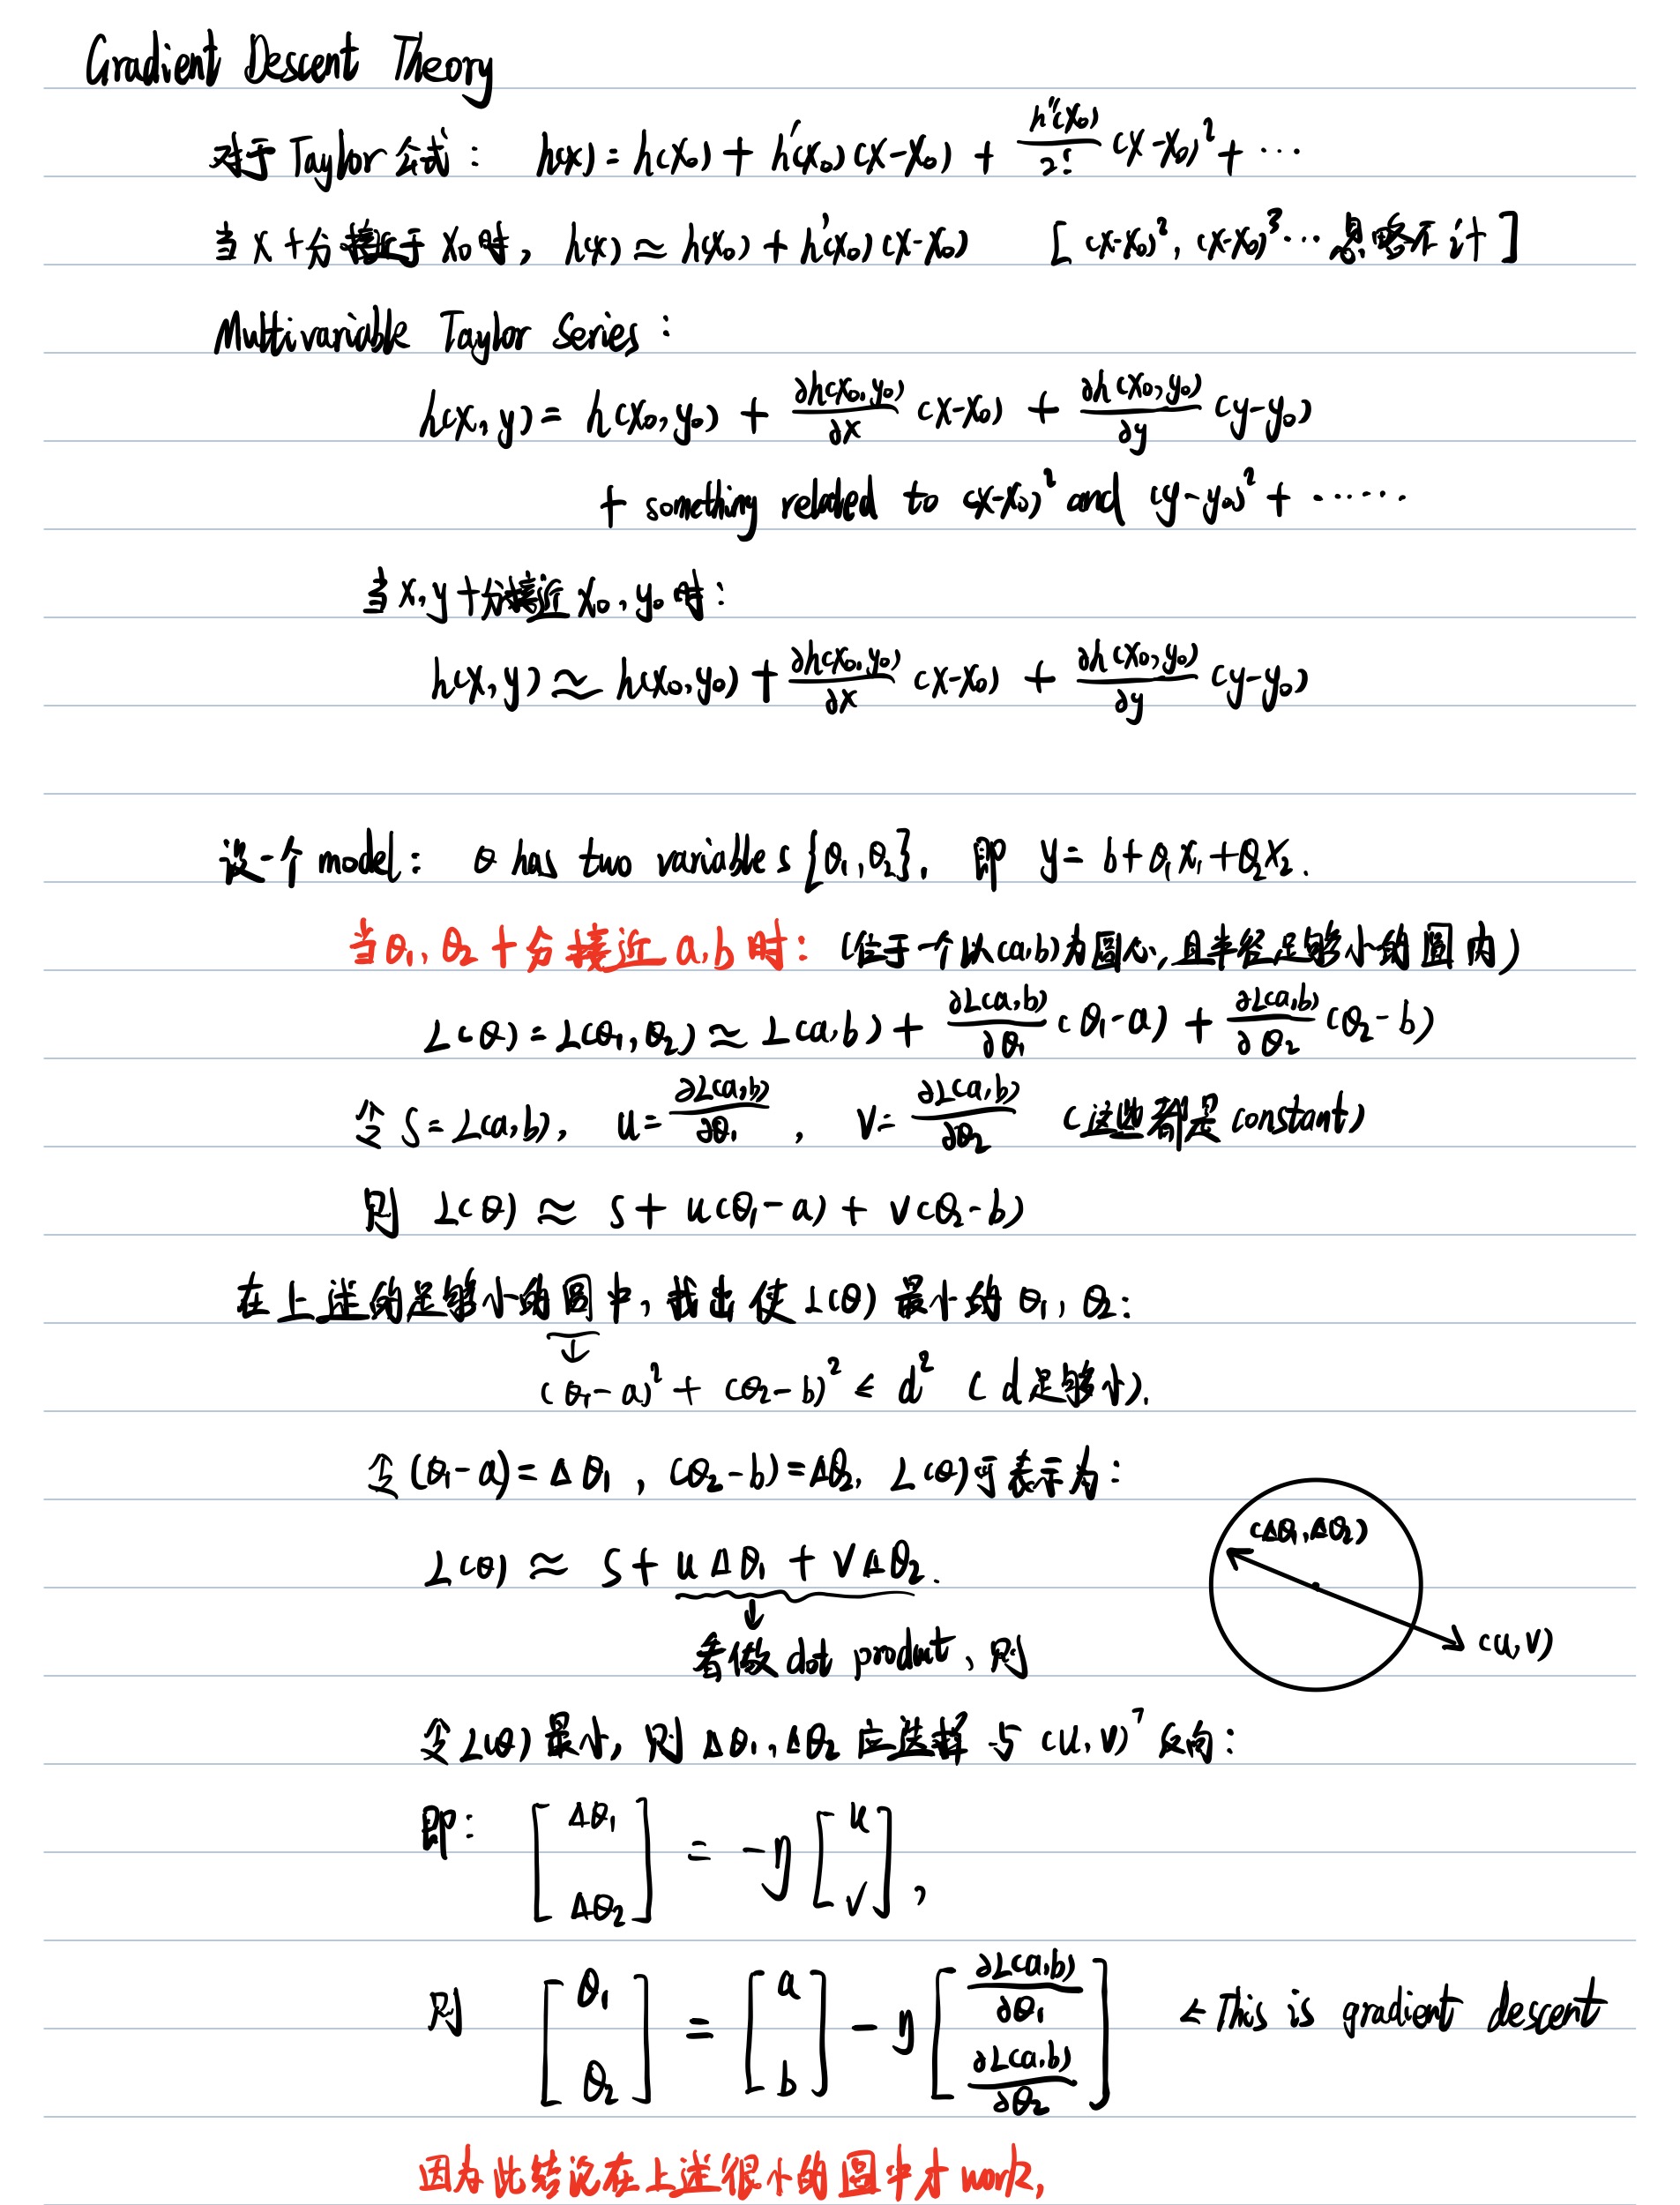 Gradient Descent Theory
对于 Taylor 公式： h(x) = h(x₀) + h'(x₀)(x-x₀) + h''(x₀)/2! (x-x₀)² + ⋯
当 x 十分接近于 x₀ 时， h(x) ≈ h(x₀) + h'(x₀)(x-x₀) [ (x-x₀)², (x-x₀)³ ⋯ 忽略不计 ]
Multivariable Taylor Series :
h(x, y) = h(x₀, y₀) + ∂h(x₀, y₀)/∂x (x-x₀) + ∂h(x₀, y₀)/∂y (y-y₀)
+ something related to (x-x₀)² and (y-y₀)² + ⋯⋯
当 x, y 十分接近 x₀, y₀ 时：
h(x, y) ≈ h(x₀, y₀) + ∂h(x₀, y₀)/∂x (x-x₀) + ∂h(x₀, y₀)/∂y (y-y₀)
设一个 model: θ has two variables {θ₁, θ₂}, 即 y = b + θ₁x₁ + θ₂x₂.
当 θ₁, θ₂ 十分接近 a, b 时： (位于一个以(a,b)为圆心, 且半径足够小的圆内)
L(θ) = L(θ₁, θ₂) ≈ L(a, b) + ∂L(a,b)/∂θ₁ (θ₁-a) + ∂L(a,b)/∂θ₂ (θ₂-b)
令 S = L(a, b), u = ∂L(a,b)/∂θ₁ , v = ∂L(a,b)/∂θ₂ (这些都是 constant)
则 L(θ) ≈ S + u(θ₁-a) + v(θ₂-b)
在上述的足够小的圆中, 找出使 L(θ) 最小的 θ₁, θ₂:
↓
(θ₁-a)² + (θ₂-b)² ≤ d² ( d足够小).
令 (θ₁-a) = Δθ₁ , (θ₂-b) = Δθ₂, L(θ)可表示为：
(Δθ₁, Δθ₂)
L(θ) ≈ S + uΔθ₁ + vΔθ₂.
↓
(u, v)
看做 dot product, 则
令 L(θ) 最小, 则 Δθ₁, Δθ₂ 应选择与 (u, v)ᵀ 反向：
即： [Δθ₁ Δθ₂] = -η [u v] ,
则 [θ₁ θ₂] = [a b] - η [∂L(a,b)/∂θ₁ ∂L(a,b)/∂θ₂] ← This is gradient descent
因为此结论在上述很小的圆中才 work,